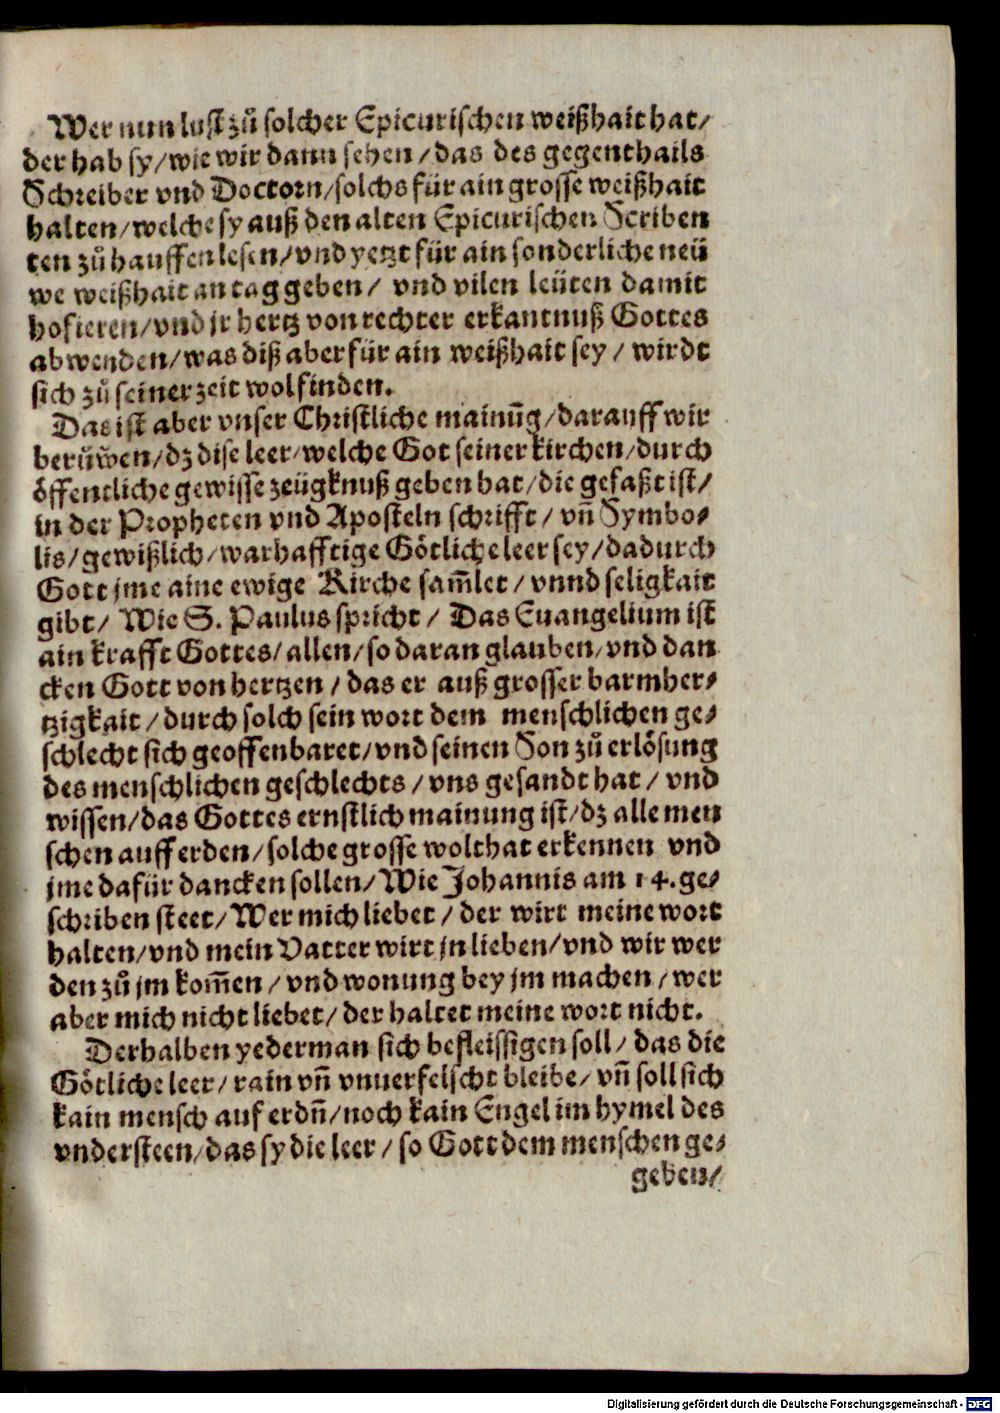 Wer nun lust zů solcher Epicurischen weißhait hat/
der hab sy/wie wir dann sehen/das des gegenthails
Schreiber vnd Doctorn/solchs für ain grosse weißhait
halten/welche sy auß den alten Epicurischen Scriben
ten zů hauffen lesen/vnd yetzt für ain sonderliche neü
we weißhait an tag geben/ vnd vilen leüten damit
hofieren/vnd jr hertz von rechter erkantnuß Gottes
abwenden/was diß aber für ain weißhait sey/ wirdt
sich zů seiner zeit wol finden.
Das ist aber vnser Christliche mainūg/darauff wir
berůwen/dz dise leer/welche Got seiner kirchen/durch
öffentliche gewisse zeügknuß geben hat/die gefaßt ist/
in der Propheten vnd Aposteln schrifft/ vn̄ Symbo⸗
lis/gewißlich/warhafftige Götliche leer sey/dadurch
Gott jme aine ewige Kirche sam̄let/ vnnd seligkait
gibt/ Wie S. Paulus spricht/ Das Euangelium ist
ain krafft Gottes/allen/so daran glauben/vnd dan
cken Gott von hertzen/das er auß grosser barmher⸗
tzigkait/durch solch sein wort dem menschlichen ge⸗
schlecht sich geoffenbaret/vnd seinen Son zů erlösung
des menschlichen geschlechts/vns gesandt hat/ vnd
wissen/das Gottes ernstlich mainung ist/dz alle men
schen auff erden/solche grosse wolthat erkennen vnd
jme dafür dancken sollen/Wie Johannis am 14. ge⸗
schriben steet/Wer mich liebet/ der wirt meine wort
halten/vnd mein Vatter wirt jn lieben/vnd wir wer
den zů jm kom̄en/vnd wonung bey jm machen/wer
aber mich nicht liebet/der haltet meine wort nicht.
Derhalben yederman sich befleissigen soll/ das die
Götliche leer/rain vn̄ vnuerfelscht bleibe/vn̄ soll sich
kain mensch auf erdn̄/noch kain Engel im hymel des
vndersteen/das sy die leer/so Gott dem menschen ge⸗
geben/
Digitalisierung gefördert durch die Deutsche Forschungsgemeinschaft - DFG